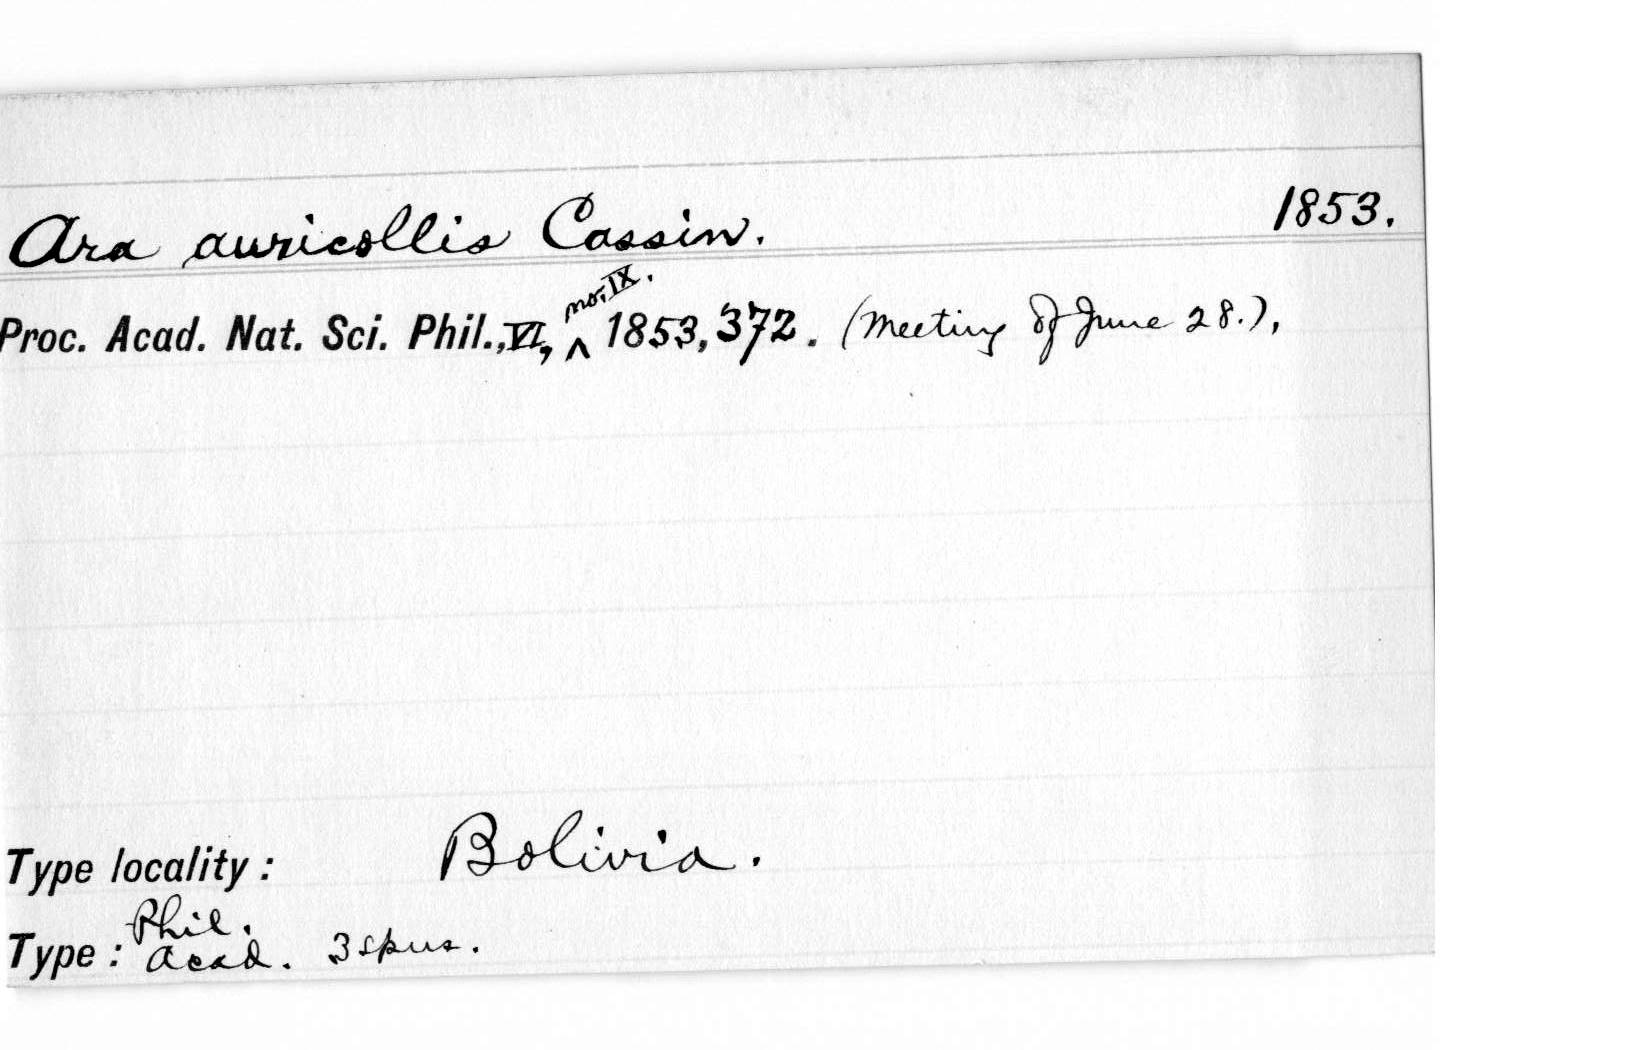 Ara auricollis Cassin. 1853.
Proc. Acad. Nat. Sci. Phil., VI, ^ no. IX. 1853, 372. (Meeting of June 28.),
Type locality: Bolivia.
Phil.
Type: Acad. 3 spns.